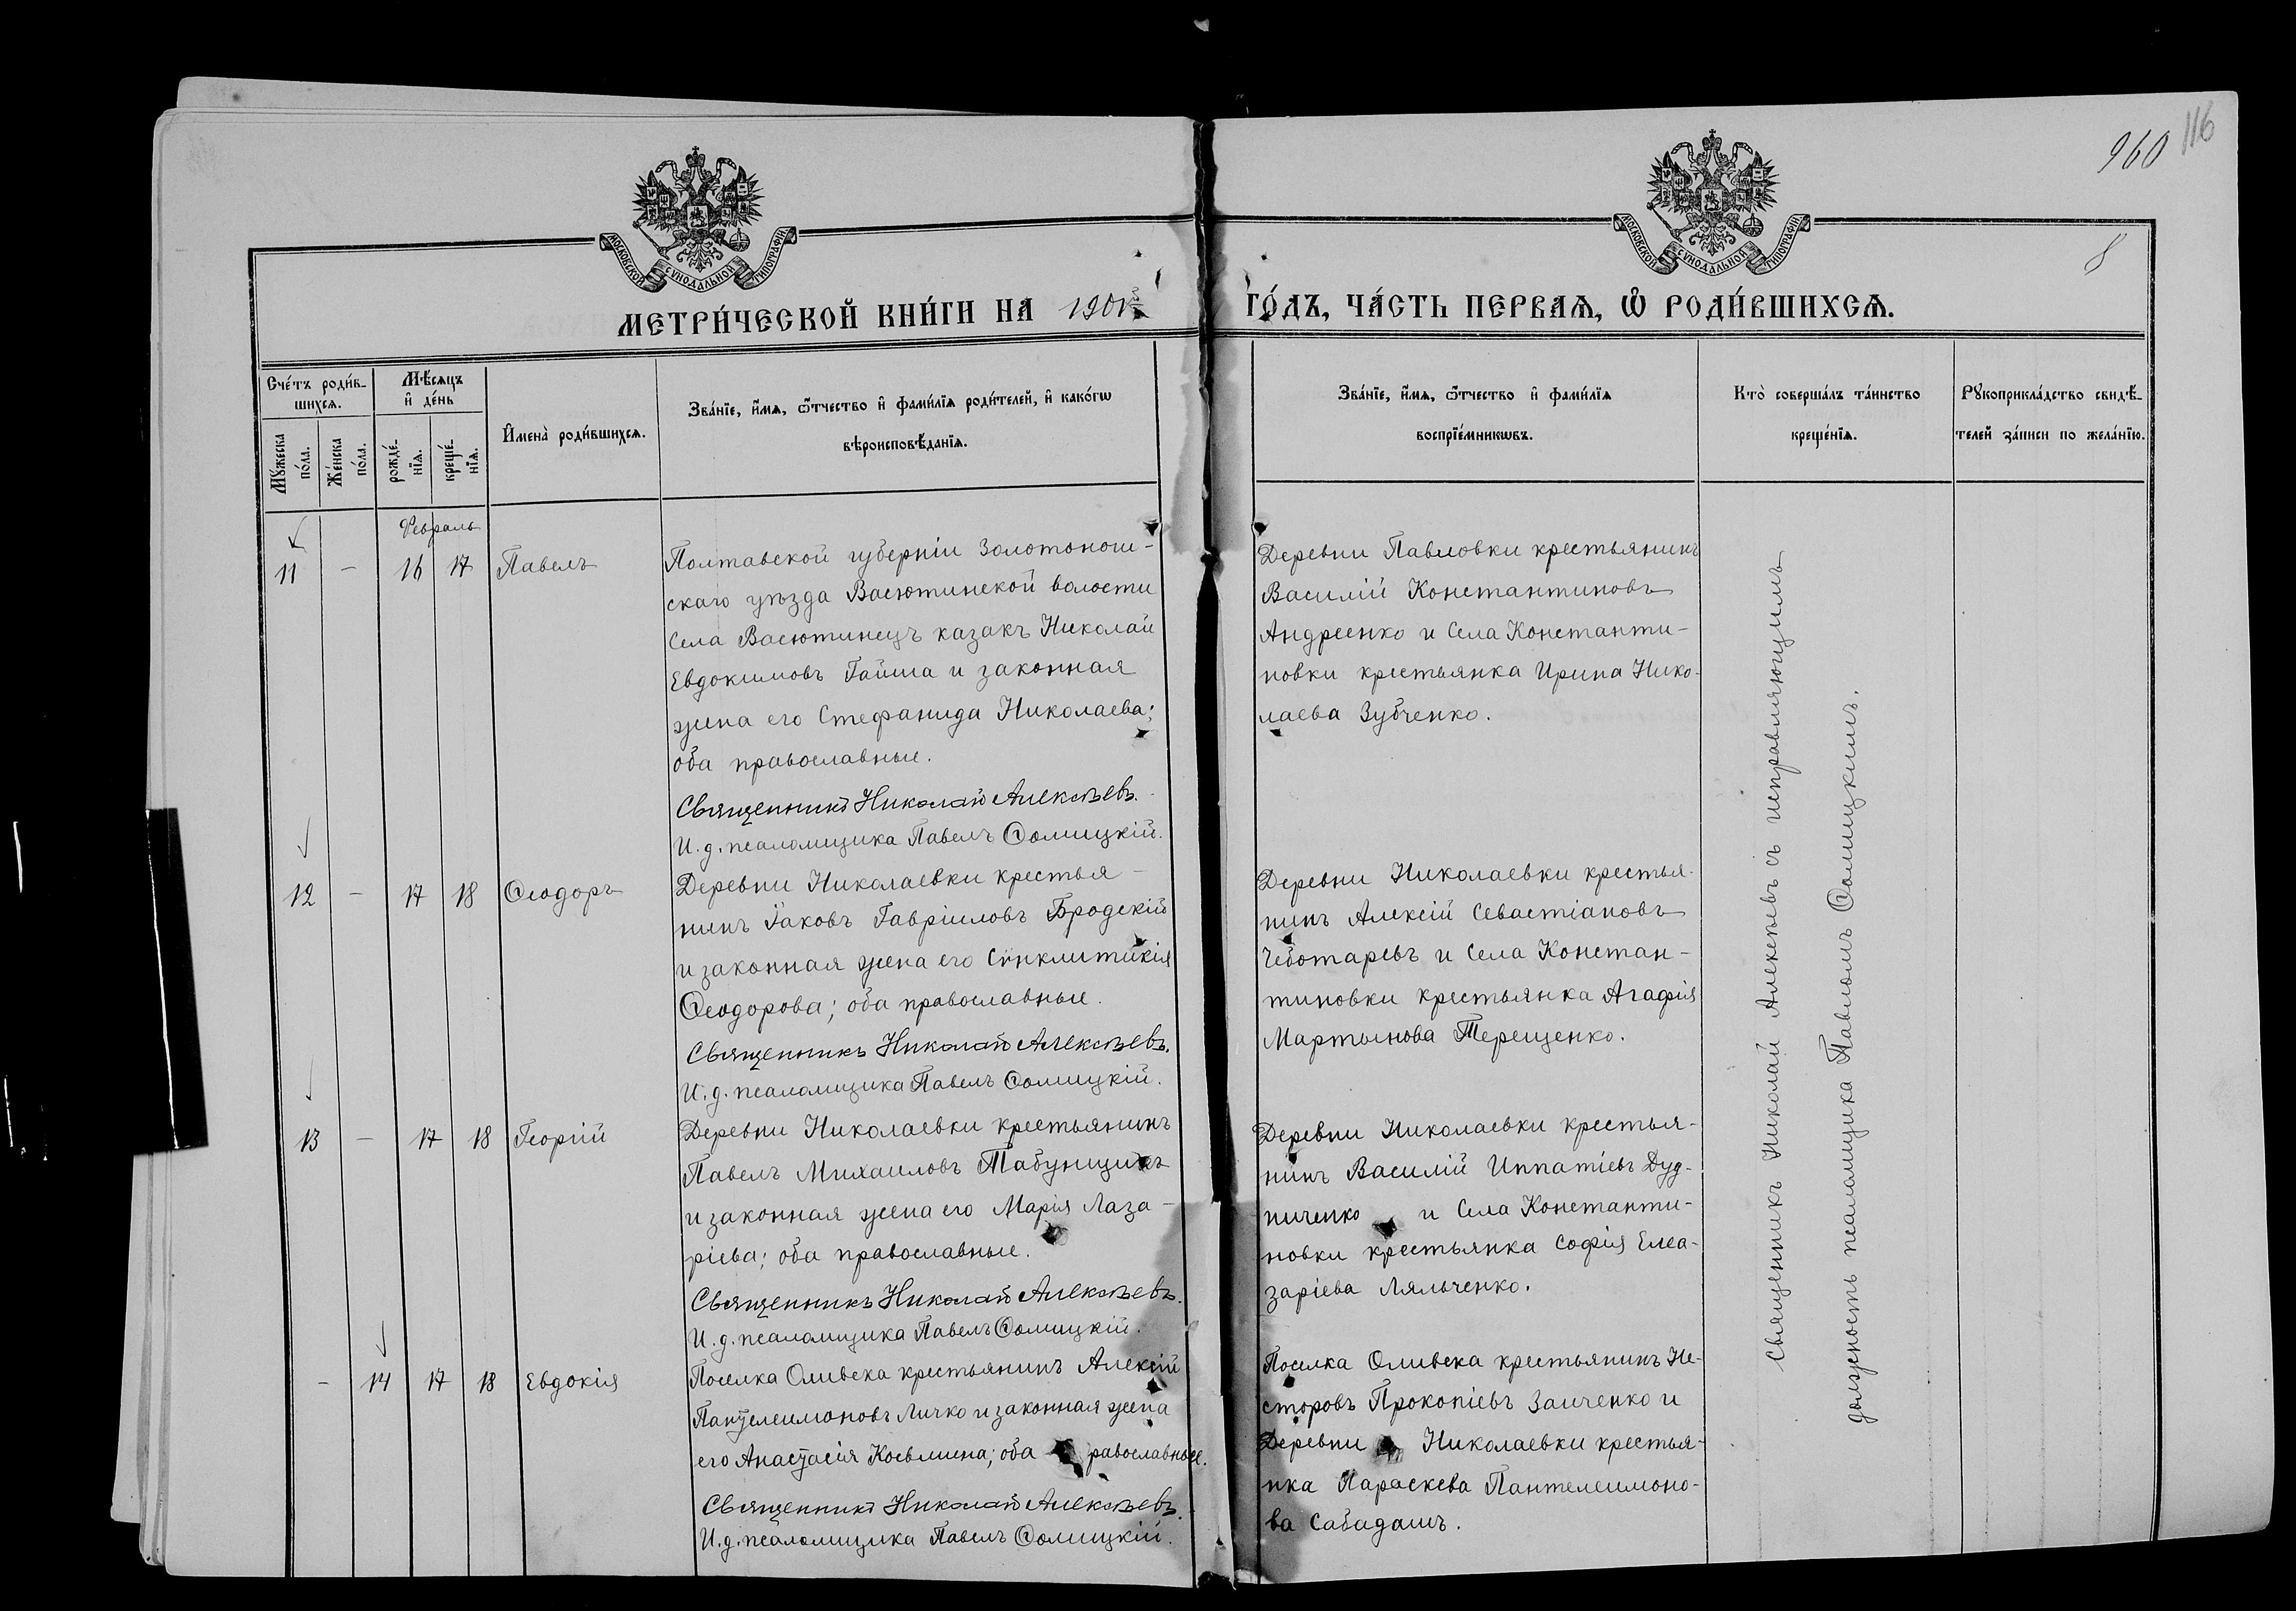 960 116
МОСКОВСКОЙ СѴНОДАЛЬНОЙ ТИПОГРАФІИ
МОСКОВСКОЙ СѴНОДАЛЬНОЙ ТИПОГРАФІИ
8
МЕТРИ́ЧЕСКОЙ КНИ́ГИ НА 1901 ГО́ДЪ, ЧА́СТЬ ПЕРВАѦ, Ѽ РОДИ́ВШИХСѦ.
Сче́тъ роди́в-
шихсѧ.
Мѣ́сѧцъ
и҆ де́нь
Мꙋ́жеска
по́ла.
Же́нска
по́ла.
рожде́-
нїѧ.
креще́-
нїѧ.
И҆мена̀ роди́вшихсѧ.
Зва́нїе, и҆́мѧ, ѻ҆́тчество и҆ фами́лїѧ роди́телей, и҆ како́гѡ
вѣроисповѣ́данїѧ.
Зва́нїе, и҆́мѧ, ѻ҆́тчество и҆ фами́лїѧ
воспрїе́мникѡвъ.
Кто̀ соверша́лъ та́инство
креще́нїѧ.
Рꙋкоприкла́дство свидѣ́-
телей за́писи по жела́нїю.
Февраль
11 – 16 17 Павелъ
Полтавской губерніи Золотонош-
скаго уѣзда Васютинской волости
села Васютинецъ казакъ Николай
Евдокимовъ Гайша и законная
жена его Стефанида Николаева;
оба православные.
Священникъ Николай Алексѣевъ.
И. д. псаломщика Павелъ Ѳомицкій.
Деревни Павловки крестьянинъ
Василій Константиновъ
Андреенко и села Константи-
новки крестьянка Ирина Нико-
лаева Зубченко.
12 – 17 18 Ѳеодоръ
Деревни Николаевки крестья-
нинъ Іаковъ Гавріиловъ Бродскій
и законная жена его Сѵнклитикія
Ѳеодорова; оба православные.
Священникъ Николай Алексѣевъ.
И. д. псаломщика Павелъ Ѳомицкій.
Деревни Николаевки крестья-
нинъ Алексій Севастіановъ
Чеботаревъ и села Констан-
тиновки крестьянка Агафія
Мартынова Терещенко.
13 – 17 18 Георгій
Деревни Николаевки крестьянинъ
Павелъ Михаиловъ Табунщикъ
и законная жена его Марія Лаза-
ріева; оба православные.
Священникъ Николай Алексѣевъ.
И. д. псаломщика Павелъ Ѳомицкій.
Деревни Николаевки крестья-
нинъ Василій Ипатіевъ Дуд-
ниченко и села Константи-
новки крестьянка Софія Елеа-
заріева Ляльченко.
– 14 17 18 Евдокія
Поселка Оливска крестьянинъ Алексій
Пантелеимоновъ Личко и законная жена
его Анастасія Косьмина; оба равославные.
Священникъ Николай Алексѣевъ.
И. д. псаломщика Павелъ Ѳомицкій.
Поселка Оливска крестьянинъ Не-
сторовъ Прокопіевъ Заиченко и
Деревни Николаевки крестья-
нка Параскева Пантелеимоно-
ва Сабадашъ.
Священникъ Николай Алексѣевъ съ исправляющимъ
должность псаломщика Павломъ Ѳомицкимъ.